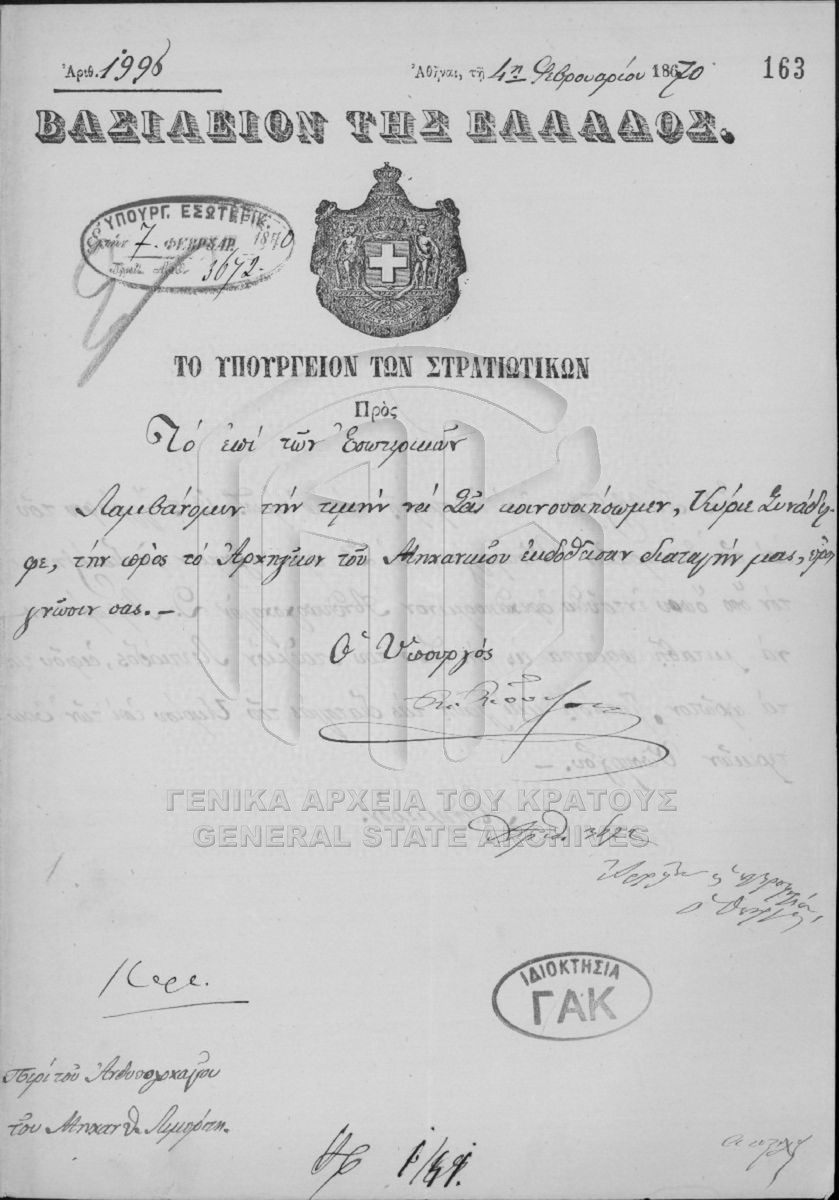 Ἀριθ. 1996 Ἀθῆναι, τῇ 4η Φεβρουαρίου 1870 163
ΒΑΣΙΛΕΙΟΝ ΤΗΣ ΕΛΛΑΔΟΣ.
ΥΠΟΥΡΓ. ΕΣΩΤΕΡΙΚ.
7 ΦΕΒΡΟΥΑΡ. 1870
3672.
ΤΟ ΥΠΟΥΡΓΕΙΟΝ ΤΩΝ ΣΤΡΑΤΙΩΤΙΚΩΝ
Πρὸς
Τό ἐπί τῶν Ἐσωτερικῶν
Λαμβάνομεν τήν τιμήν νά Σᾶς κοινοποιήσωμεν, Κύριε Συνάδελ-
φε, τήν πρός τό Ἀρχηγεῖον τοῦ Μηχανικοῦ ἐκδοθεῖσαν διαταγήν μας, πρός
γνῶσιν σας.—
Ὁ Ὑπουργός
ΓΕΝΙΚΑ ΑΡΧΕΙΑ ΤΟΥ ΚΡΑΤΟΥΣ
GENERAL STATE ARCHIVES
Ἀριθ. 3672
ΙΔΙΟΚΤΗΣΙΑ
ΓΑΚ
Περί τοῦ Ἀνθυπολοχαγοῦ
τοῦ Μηχανικ.